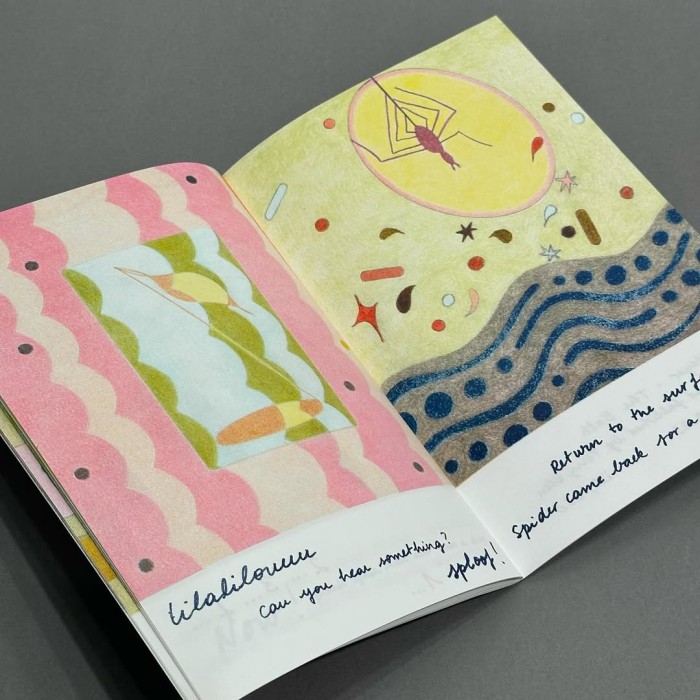 liladilouuu
can you hear something?
sploof!
Return to the surf
Spider came back for a